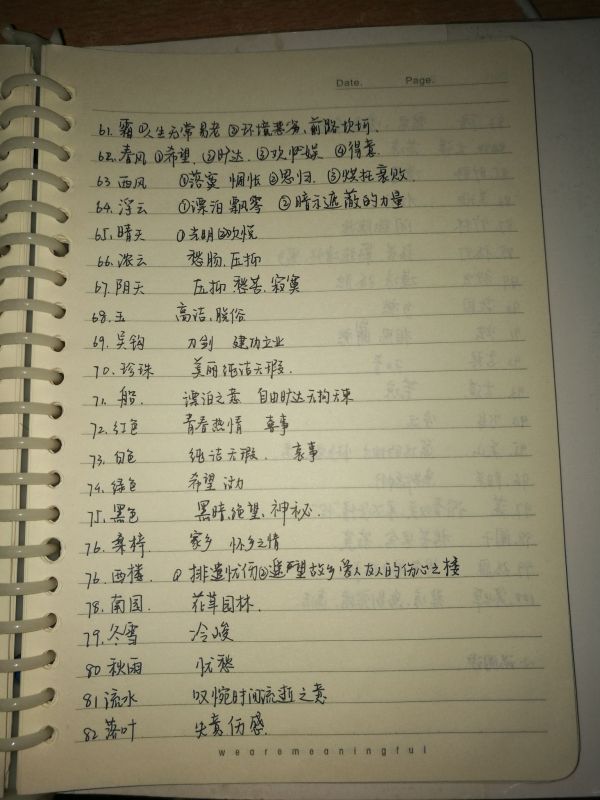 Date. Page.
61. 霜 ①人生无常易老 ②环境恶劣,前路坎坷.
62. 春风 ①希望. ②旷达. ③欢愉 ④得意.
63 西风 ①落寞 惆怅 ②思归. ③烘托衰败.
64. 浮云 ①漂泊飘零 ②暗示遮蔽的力量
65. 晴天 ①光明②欢悦
66. 浓云 愁肠.压抑
67. 阴天 压抑.愁苦.寂寞
68. 玉 高洁、脱俗
69. 吴钩 刀剑 建功立业
70. 珍珠 美丽纯洁无瑕.
71. 船. 漂泊之意 自由旷达无拘无束
72. 红色 青春热情 喜事
73. 白色 纯洁无瑕. 哀事
74. 绿色 希望活力
75. 黑色 黑暗.绝望、神秘.
76. 桑梓 家乡 怀乡之情
76. 西楼. ① 排遣忧伤②遥望故乡爱人友人的伤心之楼
78. 南园. 花草园林.
79. 冬雪 冷峻
80 秋雨 忧愁
81 流水 叹惋时间流逝之意
82 落叶 失意伤感.
wearemeaningful